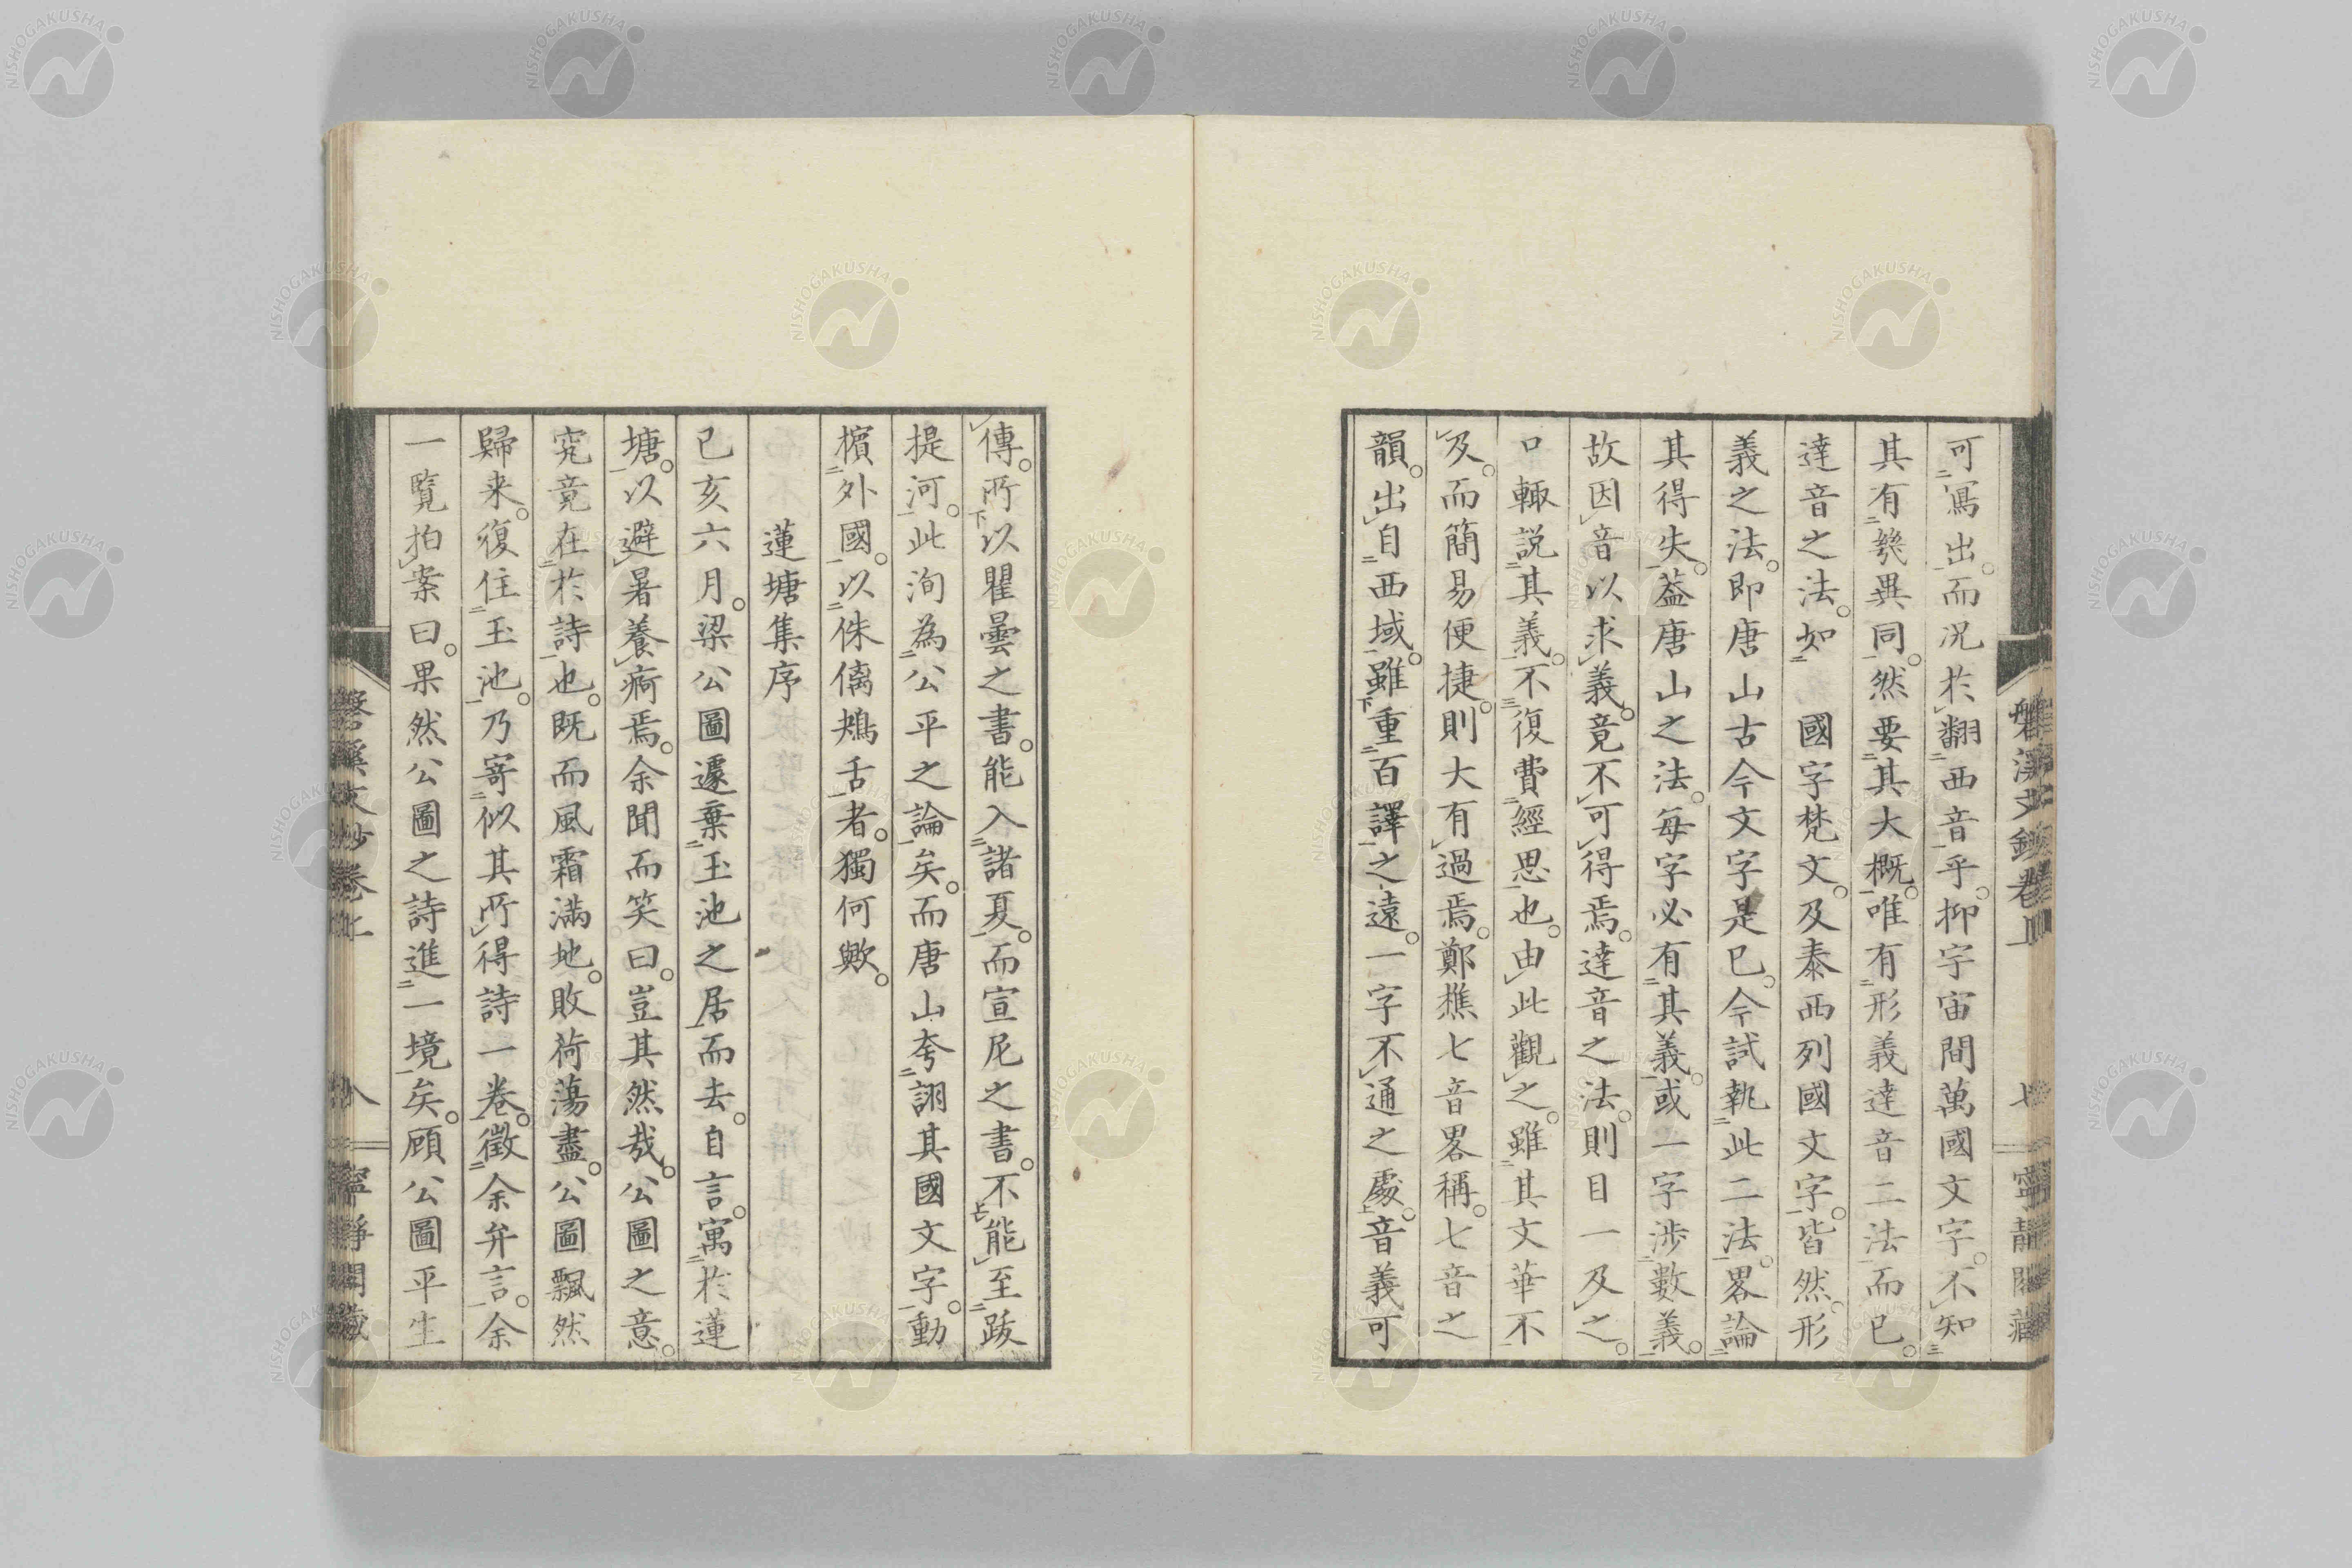 可寫出。而況於翻西音乎。抑宇宙間萬國文字。不知
其有幾異同。然要其大概。唯有形義達音二法而已。
達音之法。如　國字梵文。及泰西列國文字。皆然。形
義之法。即唐山古今文字是已。今試執此二法。畧論
其得失。蓋唐山之法。每字必有其義。或一字涉數義。
故因音以求義。竟不可得焉。達音之法。則目一及之。
口輙説其義。不復費經思也。由此觀之。雖其文華不
及。而簡易便捷。則大有過焉。鄭樵七音畧稱。七音之
韻。出自西域。雖重百譯之遠。一字不通之處。音義可
傳。所以瞿曇之書。能入諸夏。而宣尼之書。不能至跋
提河。此洵為公平之論矣。而唐山夸詡其國文字。動
擯外國。以侏僑鴂舌者。獨何歟。
蓮塘集序
己亥六月。梁公圖遽棄玉池之居而去。自言。寓於蓮
塘。以避暑養痾焉。余聞而笑曰。豈其然哉。公圖之意。
究竟在於詩也。既而風霜滿地。敗荷蕩盡。公圖飄然
歸来。復住玉池。乃寄似其所得詩一卷。徵余弁言。余
一覽拍案曰。果然公圖之詩進一境矣。顧公圖平生
磐溪文鈔卷上
七
寧靜閣藏
磐溪文鈔卷上
八
寧靜閣藏
NISHOGAKUSHA